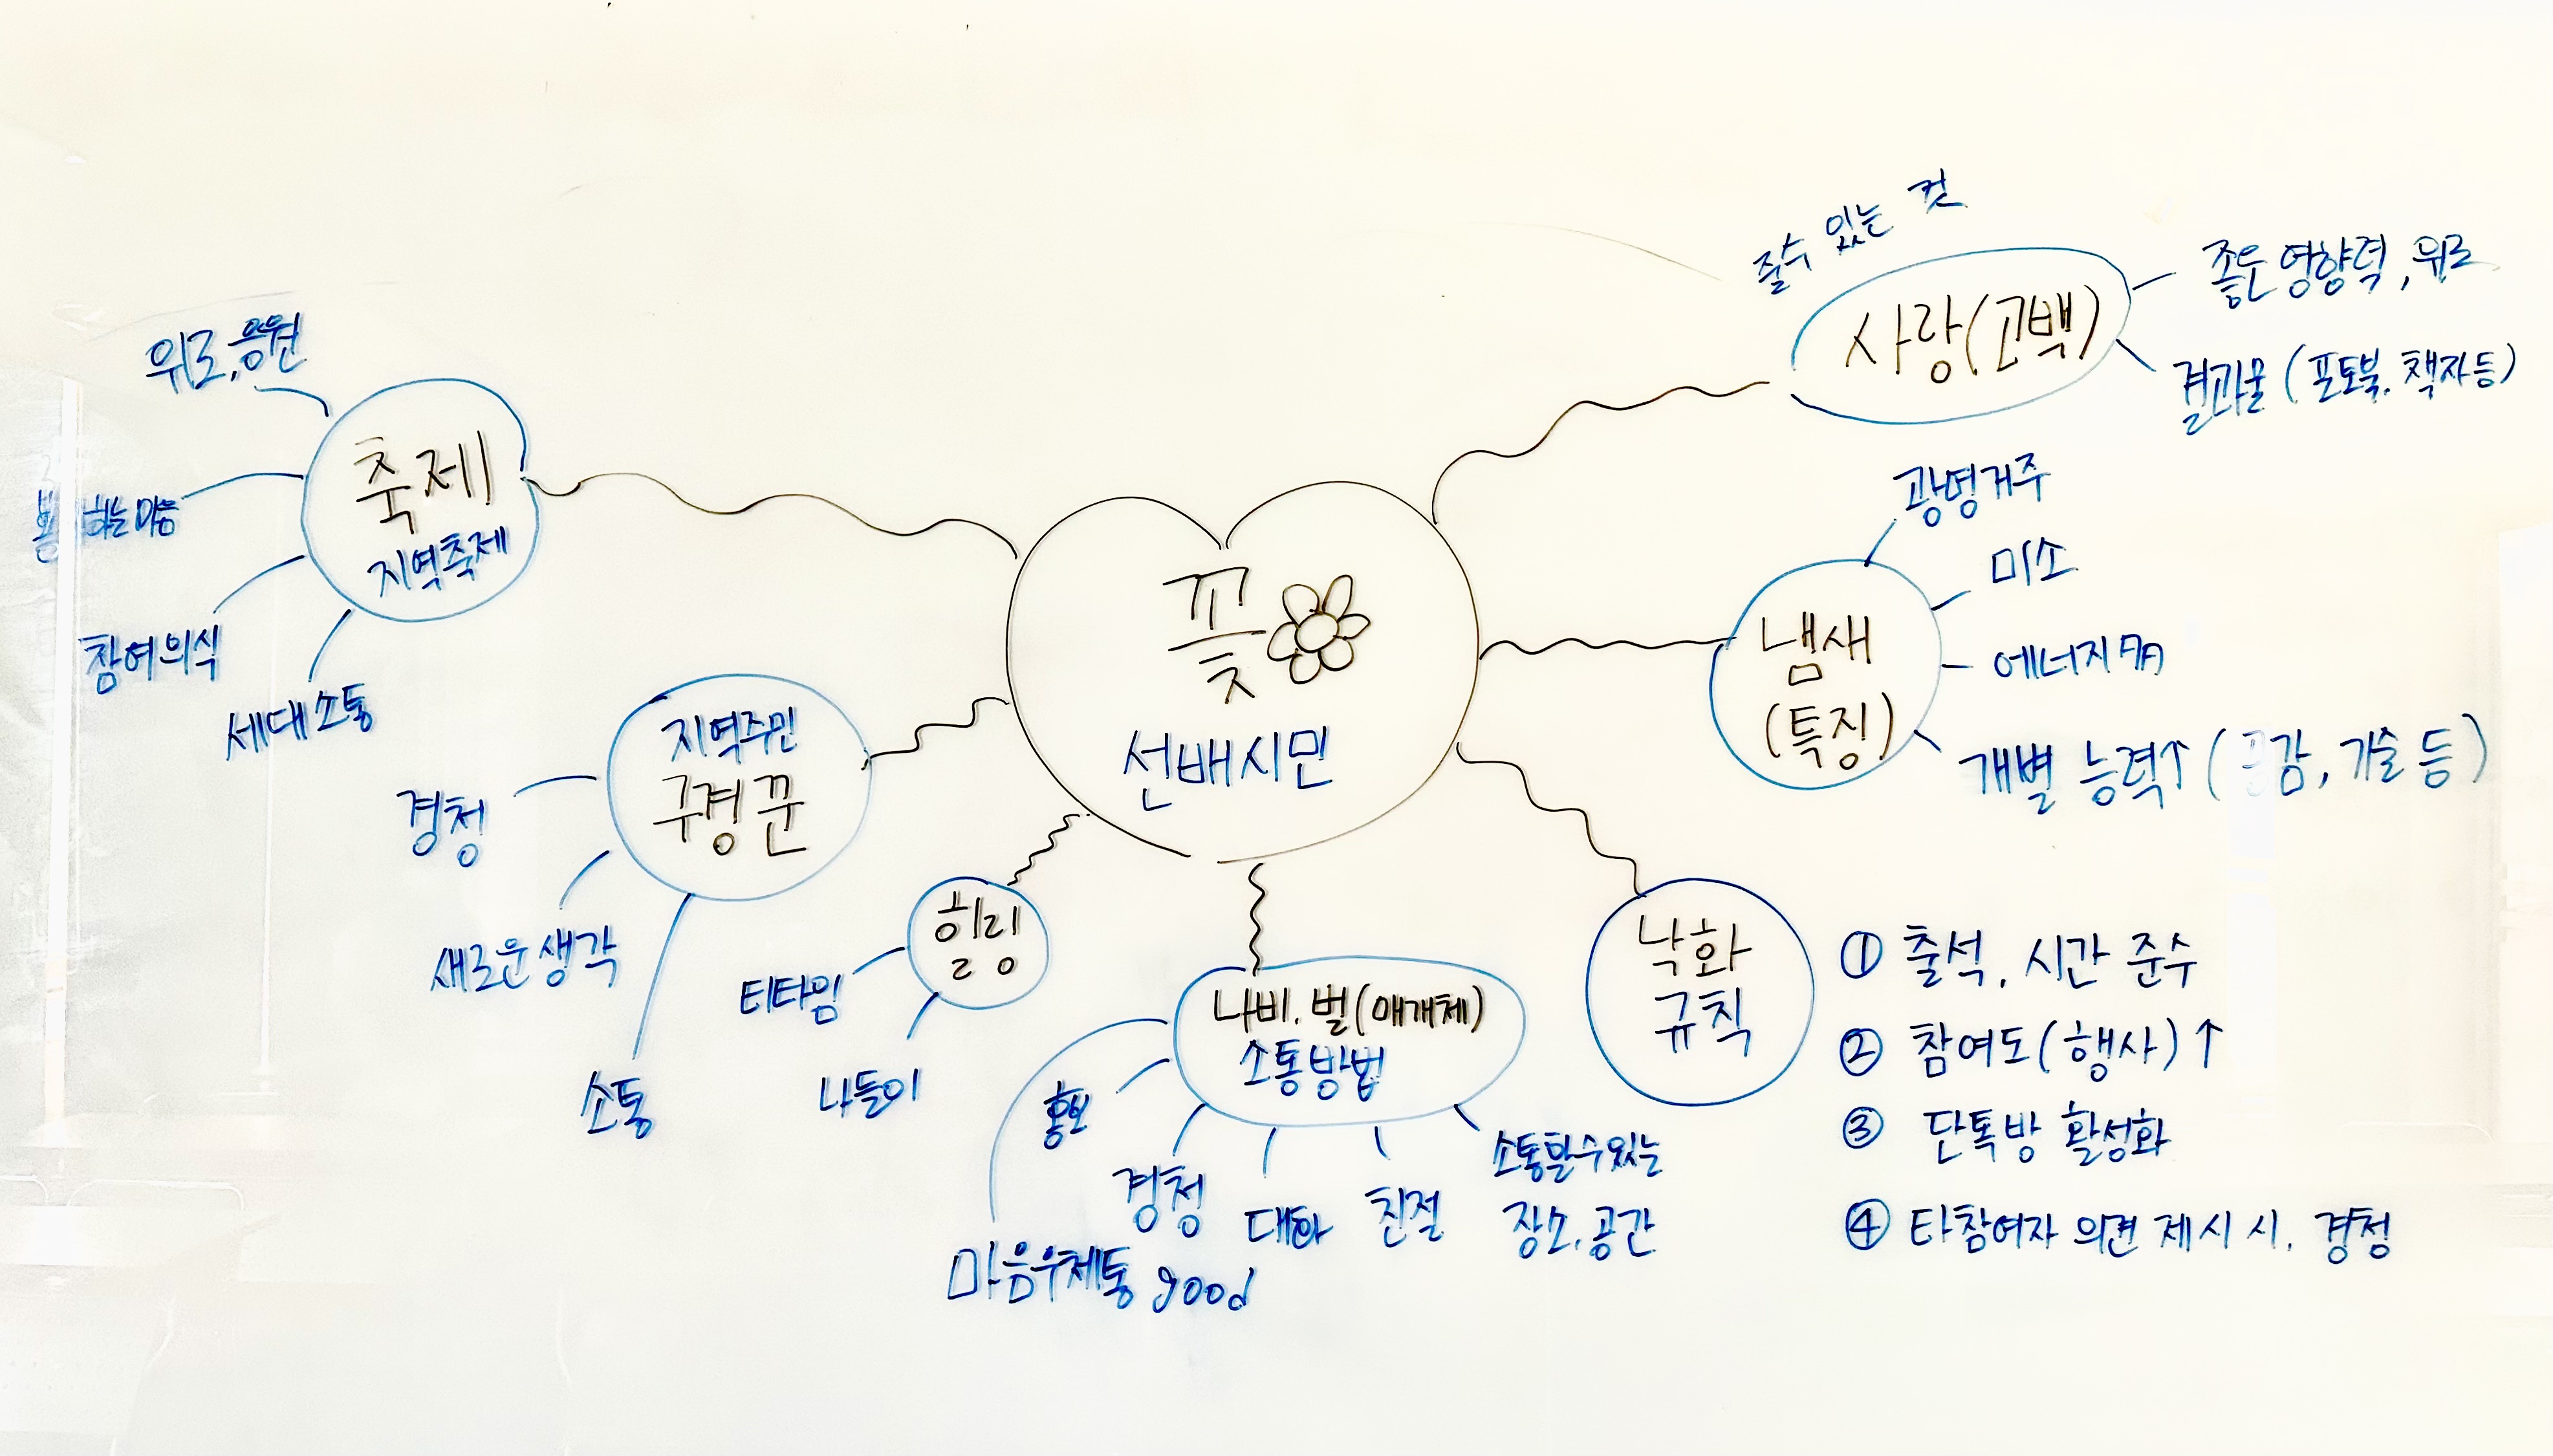 줄수 있는 것
사랑(고백)
좋은 영향력, 위로
결과물 (포토북, 책자 등)
위로, 응원
축제
지역축제
하는 마음
참여의식
세대 소통
꽃
선배시민
광명거주
미소
에너지
냄새
(특징)
개별 능력↑ (공감, 기술 등)
지역주민
구경꾼
경청
새로운 생각
소통
힐링
티타임
나들이
나비, 벌(매개체)
소통방법
홍보
경청
대화
친절
소통할 수 있는
장소, 공간
마음우체통 good
낙화
규칙
① 출석, 시간 준수
② 참여도(행사)↑
③ 단톡방 활성화
④ 타참여자 의견 제시 시, 경청